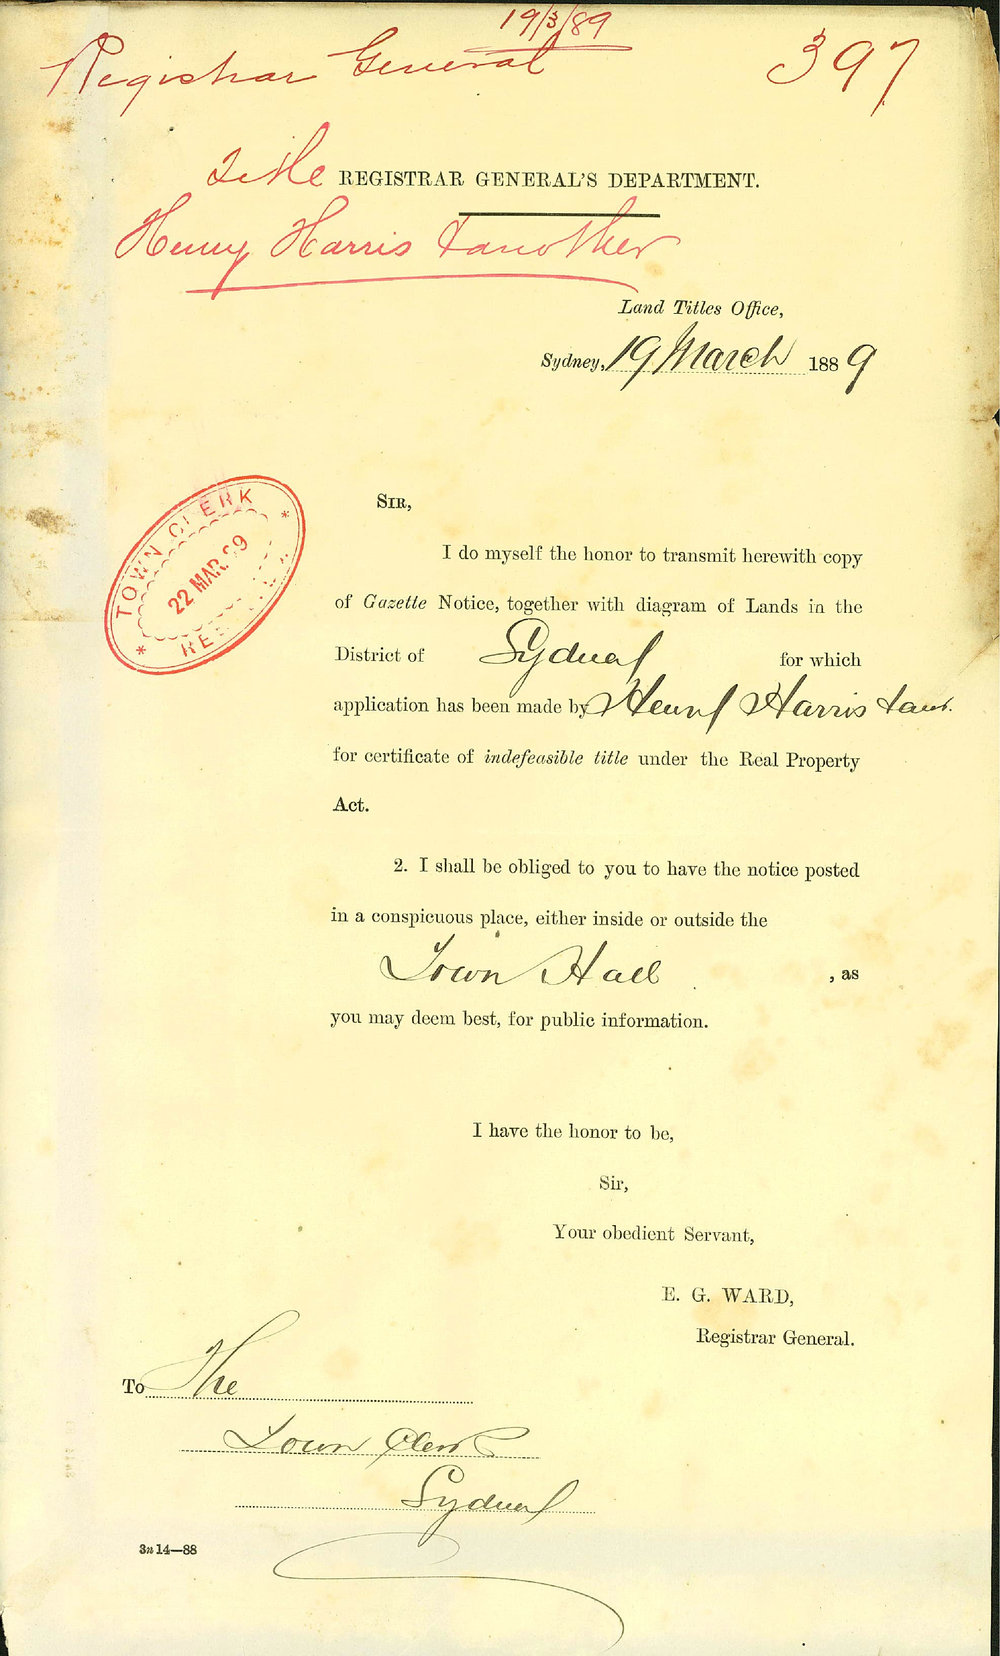 19/3/89
Registrar General 397
Title REGISTRAR GENERAL'S DEPARTMENT.
Henry Harris & another
Land Titles Office,
Sydney, 19 March 1889
TOWN CLERK
22 MAR. 89
SIR,
I do myself the honor to transmit herewith copy
of Gazette Notice, together with diagram of Lands in the
District of Sydney for which
application has been made by Henry Harris & anr.
for certificate of indefeasible title under the Real Property
Act.
2. I shall be obliged to you to have the notice posted
in a conspicuous place, either inside or outside the
Town Hall , as
you may deem best, for public information.
I have the honor to be,
Sir,
Your obedient Servant,
E. G. WARD,
Registrar General.
To The
Town Clerk
Sydney
3n 14—88